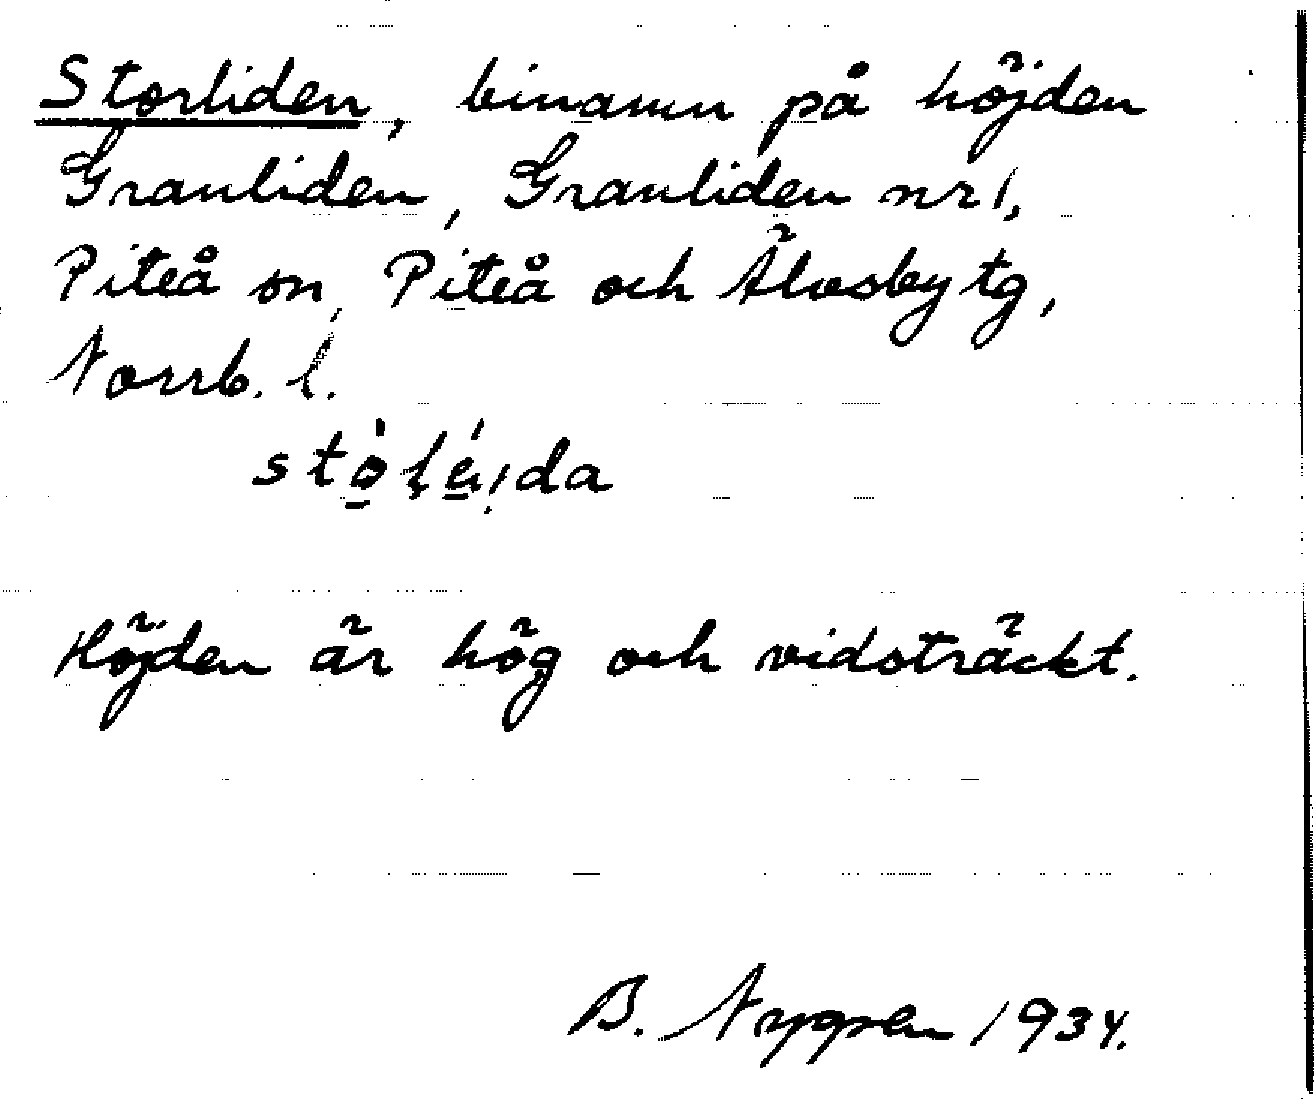 Storliden, binamn på höjden
Granliden, Granliden nr 1,
Piteå sn, Piteå och Älvsby tg,
Norrb. l.
Höjden är hög och vidsträckt.
B. Nygren 1934.